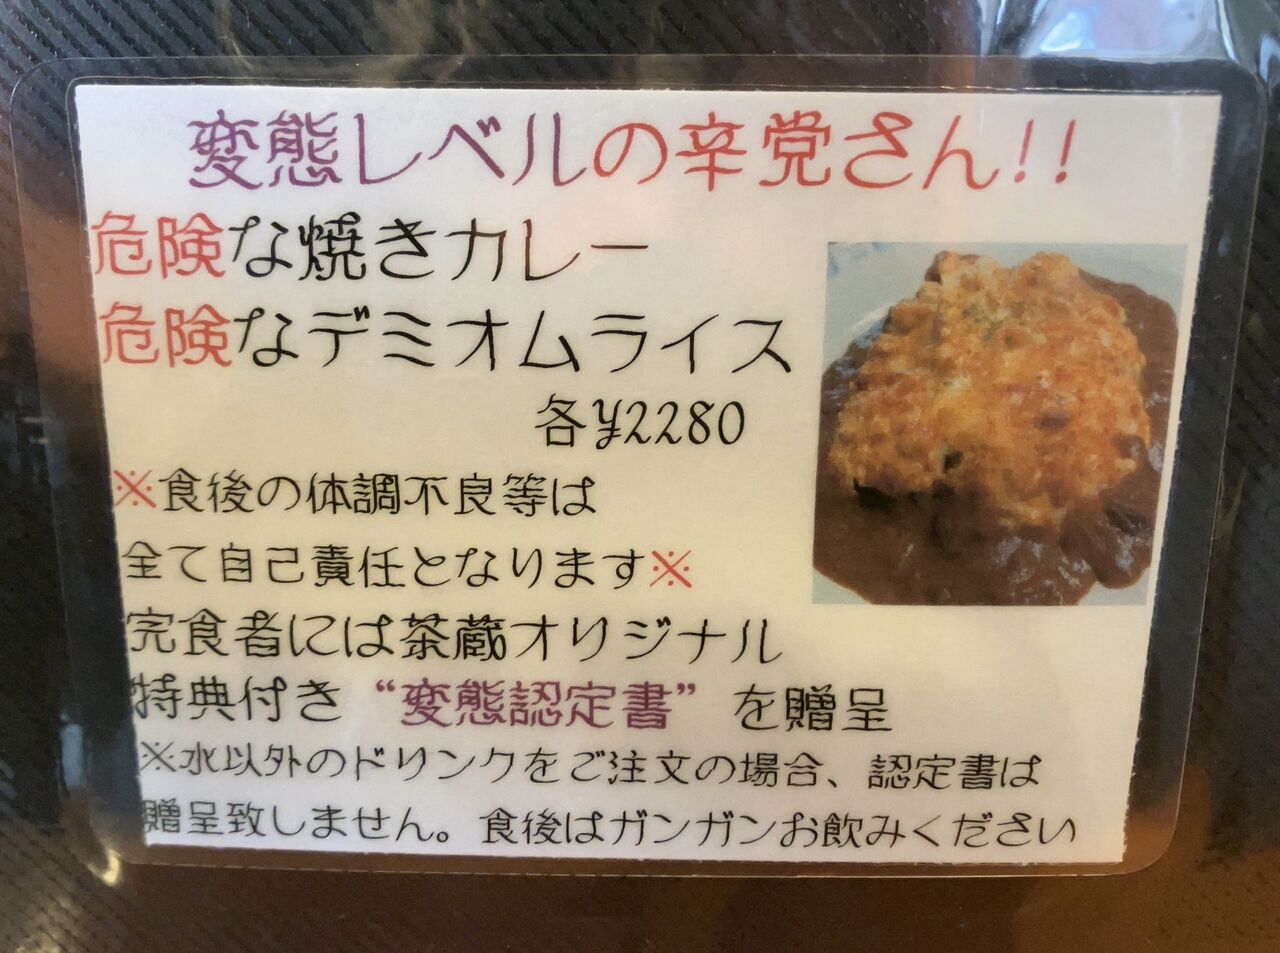 変態レベルの辛党さん!!
危険な焼きカレー
危険なデミオムライス
各¥2280
※食後の体調不良等は
全て自己責任となります※
完食者には茶蔵オリジナル
特典付き“変態認定書”を贈呈
※水以外のドリンクをご注文の場合、認定書は
贈呈致しません。食後はガンガンお飲みください